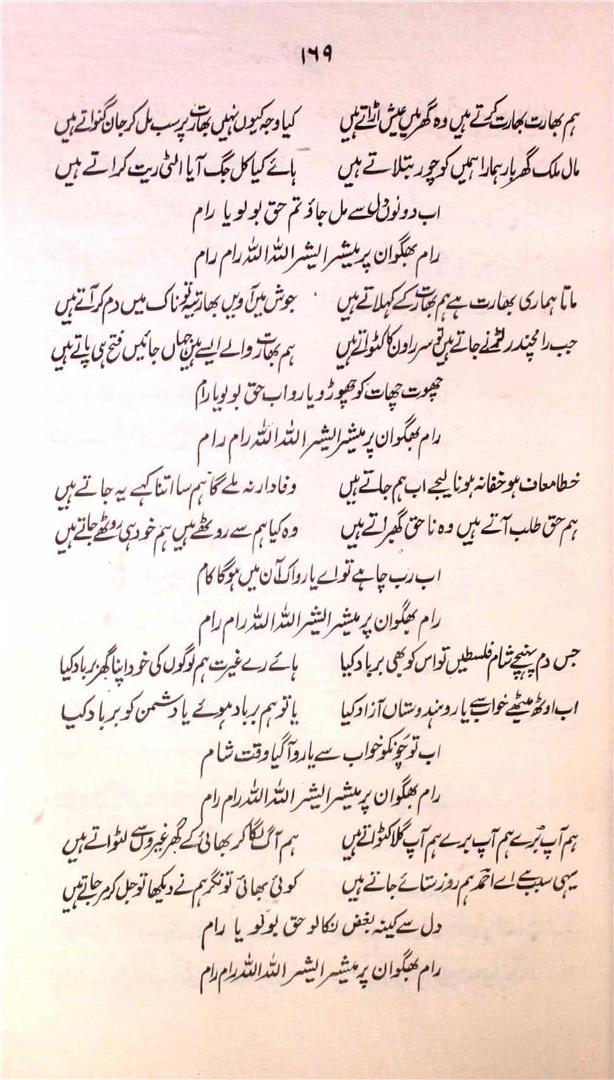 ۱۶۹
ہم بھارت بھارت کرتے ہیں وہ گھر میں عیش اڑاتے ہیں کیا وجہ کیوں نہیں بھارت پر سب مل کر جان گنواتے ہیں
مال ملک گھر بار ہمارا ہمیں کو چور بتلاتے ہیں ہائے کیا کل جگ آیا الٹی ریت کراتے ہیں
اب دونوں دل سے مل جاؤ تم حق بولو یا رام
رام بھگوان پرمیشر ایشر اللہ اللہ رام رام
ماتا ہماری بھارت ہے ہم بھارت کے کہلاتے ہیں جوش میں آویں بھارتیہ تو ناک میں دم کر آتے ہیں
جب رامچندر لڑنے جاتے ہیں تو سر راون کا کٹواتے ہیں ہم بھارت والے ایسے ہیں جہاں جائیں فتح ہی پاتے ہیں
چھوت چھات کو چھوڑو یارو اب حق بولو یا رام
رام بھگوان پرمیشر ایشر اللہ اللہ رام رام
خطا معاف ہو خفا نہ ہونا لیجے اب ہم جاتے ہیں وفادار نہ ملے گا ہم سا اتنا کہے یہ جاتے ہیں
ہم حق طلب آتے ہیں وہ ناحق گھبراتے ہیں وہ کیا ہم سے روٹھے ہیں ہم خود ہی روٹھے جاتے ہیں
اب رب چاہے تو اے یارو اک آن میں ہوگا کام
رام بھگوان پرمیشر ایشر اللہ اللہ رام رام
جس دم پہنچے شام فلسطیں تو اس کو بھی برباد کیا ہائے رے غیرت ہم لوگوں کی خود اپنا گھر برباد کیا
اب اوٹھ میٹھے خواب سے یارو ہندوستاں آزاد کیا یا تو ہم برباد ہوئے یا دشمن کو برباد کیا
اب تو چونکو خواب سے یارو آ گیا وقت شام
رام بھگوان پرمیشر ایشر اللہ اللہ رام رام
ہم آپ بُرے ہم آپ برے ہم آپ گلا کٹواتے ہیں ہم آگ لگا کر بھائی کے گھر غیروں سے لٹواتے ہیں
یہی سبب ہے اے احمد ہم روز ستائے جاتے ہیں کوئی بھائی تونگر ہم نے دیکھا تو جل کر مر جاتے ہیں
دل سے کینہ بغض نکالو حق بولو یا رام
رام بھگوان پرمیشر ایشر اللہ اللہ رام رام